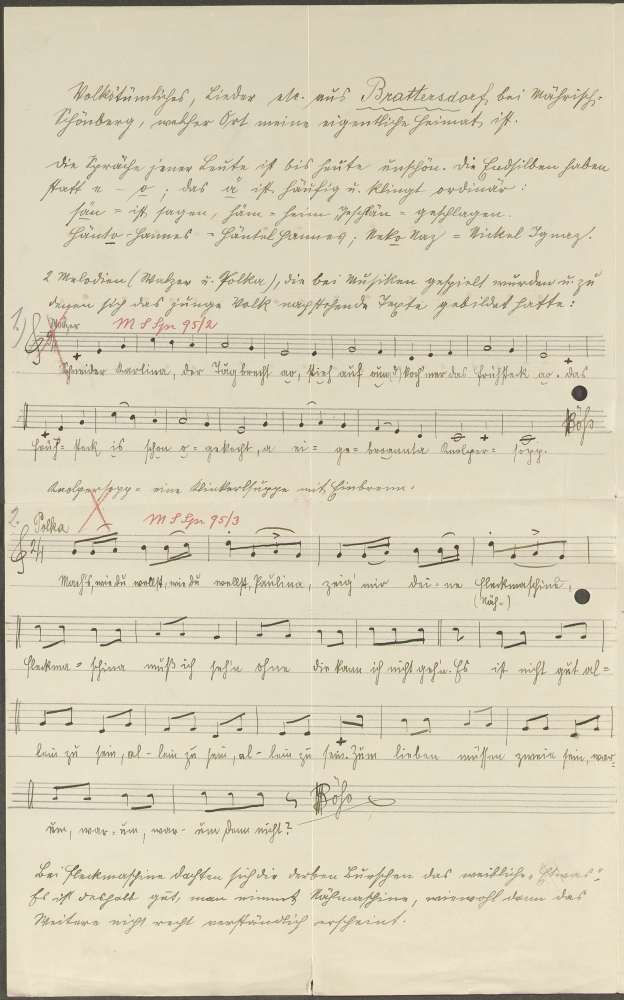 Volkstümliches, Lieder etc. aus Brattersdorf, bei Mährisch-
Schönberg, welcher Ort meine eigentliche Heimat ist.
Die Sprache jener Leute ist bis heute unschön. Die Endsilben haben
statt e - o; das å ist häufig u. klingt ordinär:
sån = ist sagen, häm = heim geschlån = geschlagen.
Hånto-Hannes = Hantel Hannes; Neko Naz = Nickel Ignaz.
2 Melodien (Walzer u. Polka), die bei Musiken gespielt wurden u. zu
denen sich das junge Volk nachstehende Texte gebildet hatte:
1.) Walzer M S Spr 95/2
Schneider Karlina, der Tag brecht ao, stieh auf on koch' mer das Früh­steck ao. das
Früh = steck is schon o = gekocht, a ei = ge = brannta Knolper = sopp.
Knolpersopp = eine Klinkerlsuppe mit Einbrenn.
2. Polka M S Spr 95/3
Mach's, wie du wellst, wie du wellst, Paulina, zeig' mir dei = ne Fleckmaschine,
(Näh-)
Fleckma = schina muß ich seh'n ohne die kann ich nicht geh'n. Es ist nicht gut al =
lein zu sein, al - lein zu sein, al - lein zu sein. Zum lieben müssen zweie sein, war-
um, war = um, war - um denn nicht?
Bei Fleckmaschine dachten sich die derben Burschen das weibliche "Etwas".
Es ist deshalb gut, man nimmt Nähmaschine, wiewohl dann das
Weitere nicht recht verständlich erscheint.